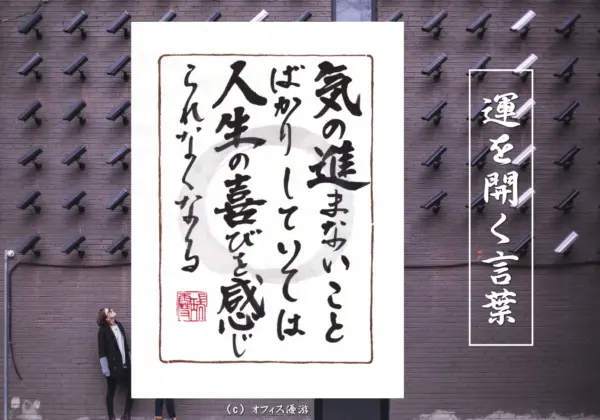 運を開く言葉
気の進まないこと
ばかりしていては
人生の喜びを感じ
られなくなる
(c) オフィス